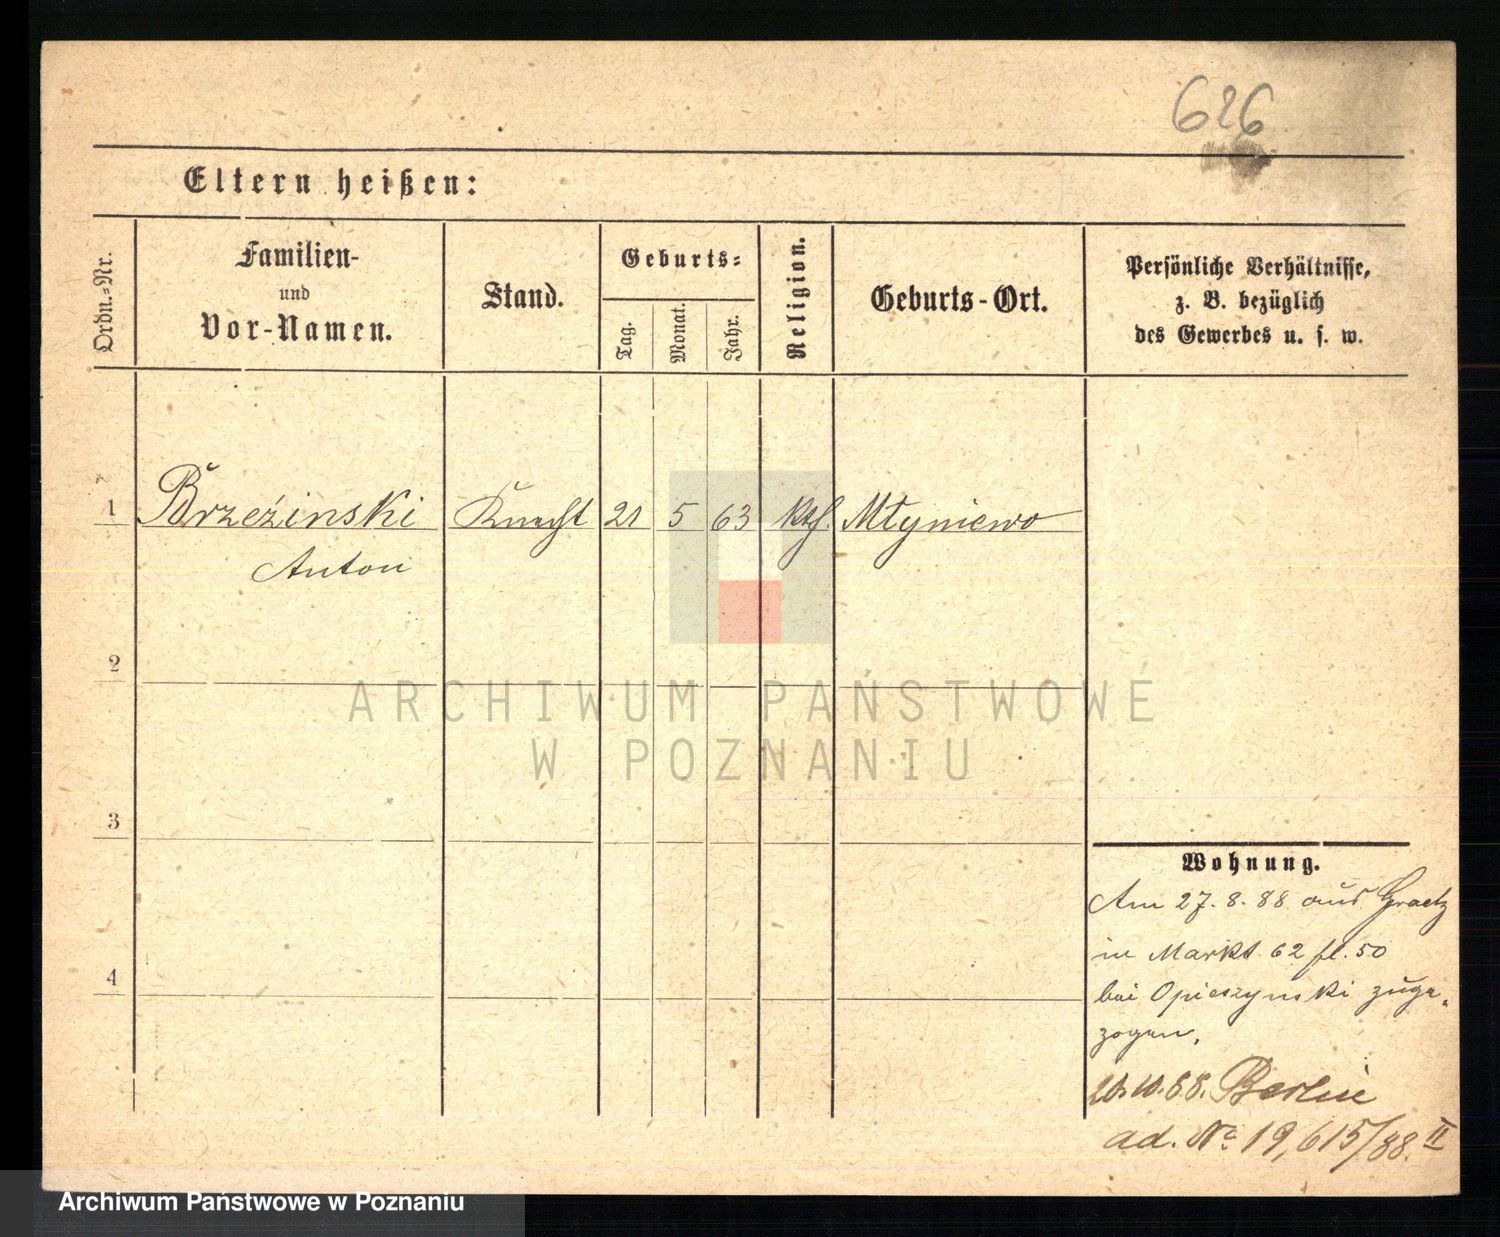 626
Eltern heißen:
Ordn.-Nr.
Familien-
und
Vor-Namen.
Stand.
Geburts-
Tag.
Monat.
Jahr.
Religion.
Geburts-Ort.
Persönliche Verhältnisse,
z. B. bezüglich
des Gewerbes u. s. w.
1 Brzeźinski Knecht 21 5 63 kth. Młyniewo
Anton
2
ARCHIWUM PAŃSTWOWE
W POZNANIU
3
4
Wohnung.
Am 27. 8. 88 aus Graetz
in Markt 62 fl. 50
bei Opieszynski zuge-
zogen.
10.88. Berlin
ad. No 19,615/88. II
Archiwum Państwowe w Poznaniu